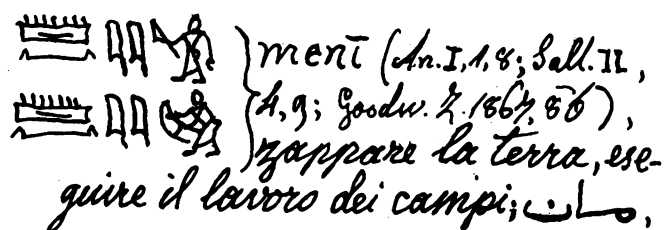 𓏠𓈖𓇋𓇋 menī (An. I, 1, 8; Sall. II,
𓏠𓈖𓇋𓇋 4, 9; Goodw. Z. 1867, 86),
zappare la terra, ese-
guire il lavoro dei campi; مان,